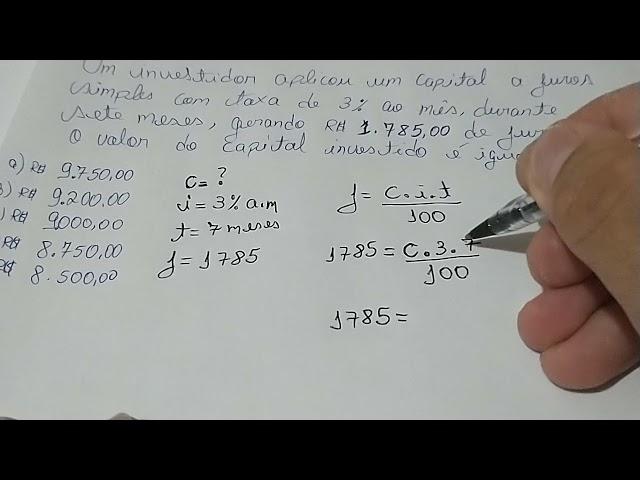 Um investidor aplicou um capital a juros
simples com taxa de 3% ao mês, durante
sete meses, gerando R$ 1.785,00 de
O valor do capital investido é
a) R$ 9.750,00
) R$ 9.200,00
) R$ 9000,00
R$ 8.750,00
R$ 8.500,00
C = ?
i = 3% a.m
t = 7 meses
j = 1785
j = C.i.t
100
1785 = C.3.7
100
1785 =